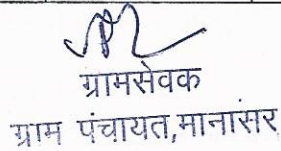 ग्रामसेवक
ग्राम पंचायत,मानासर